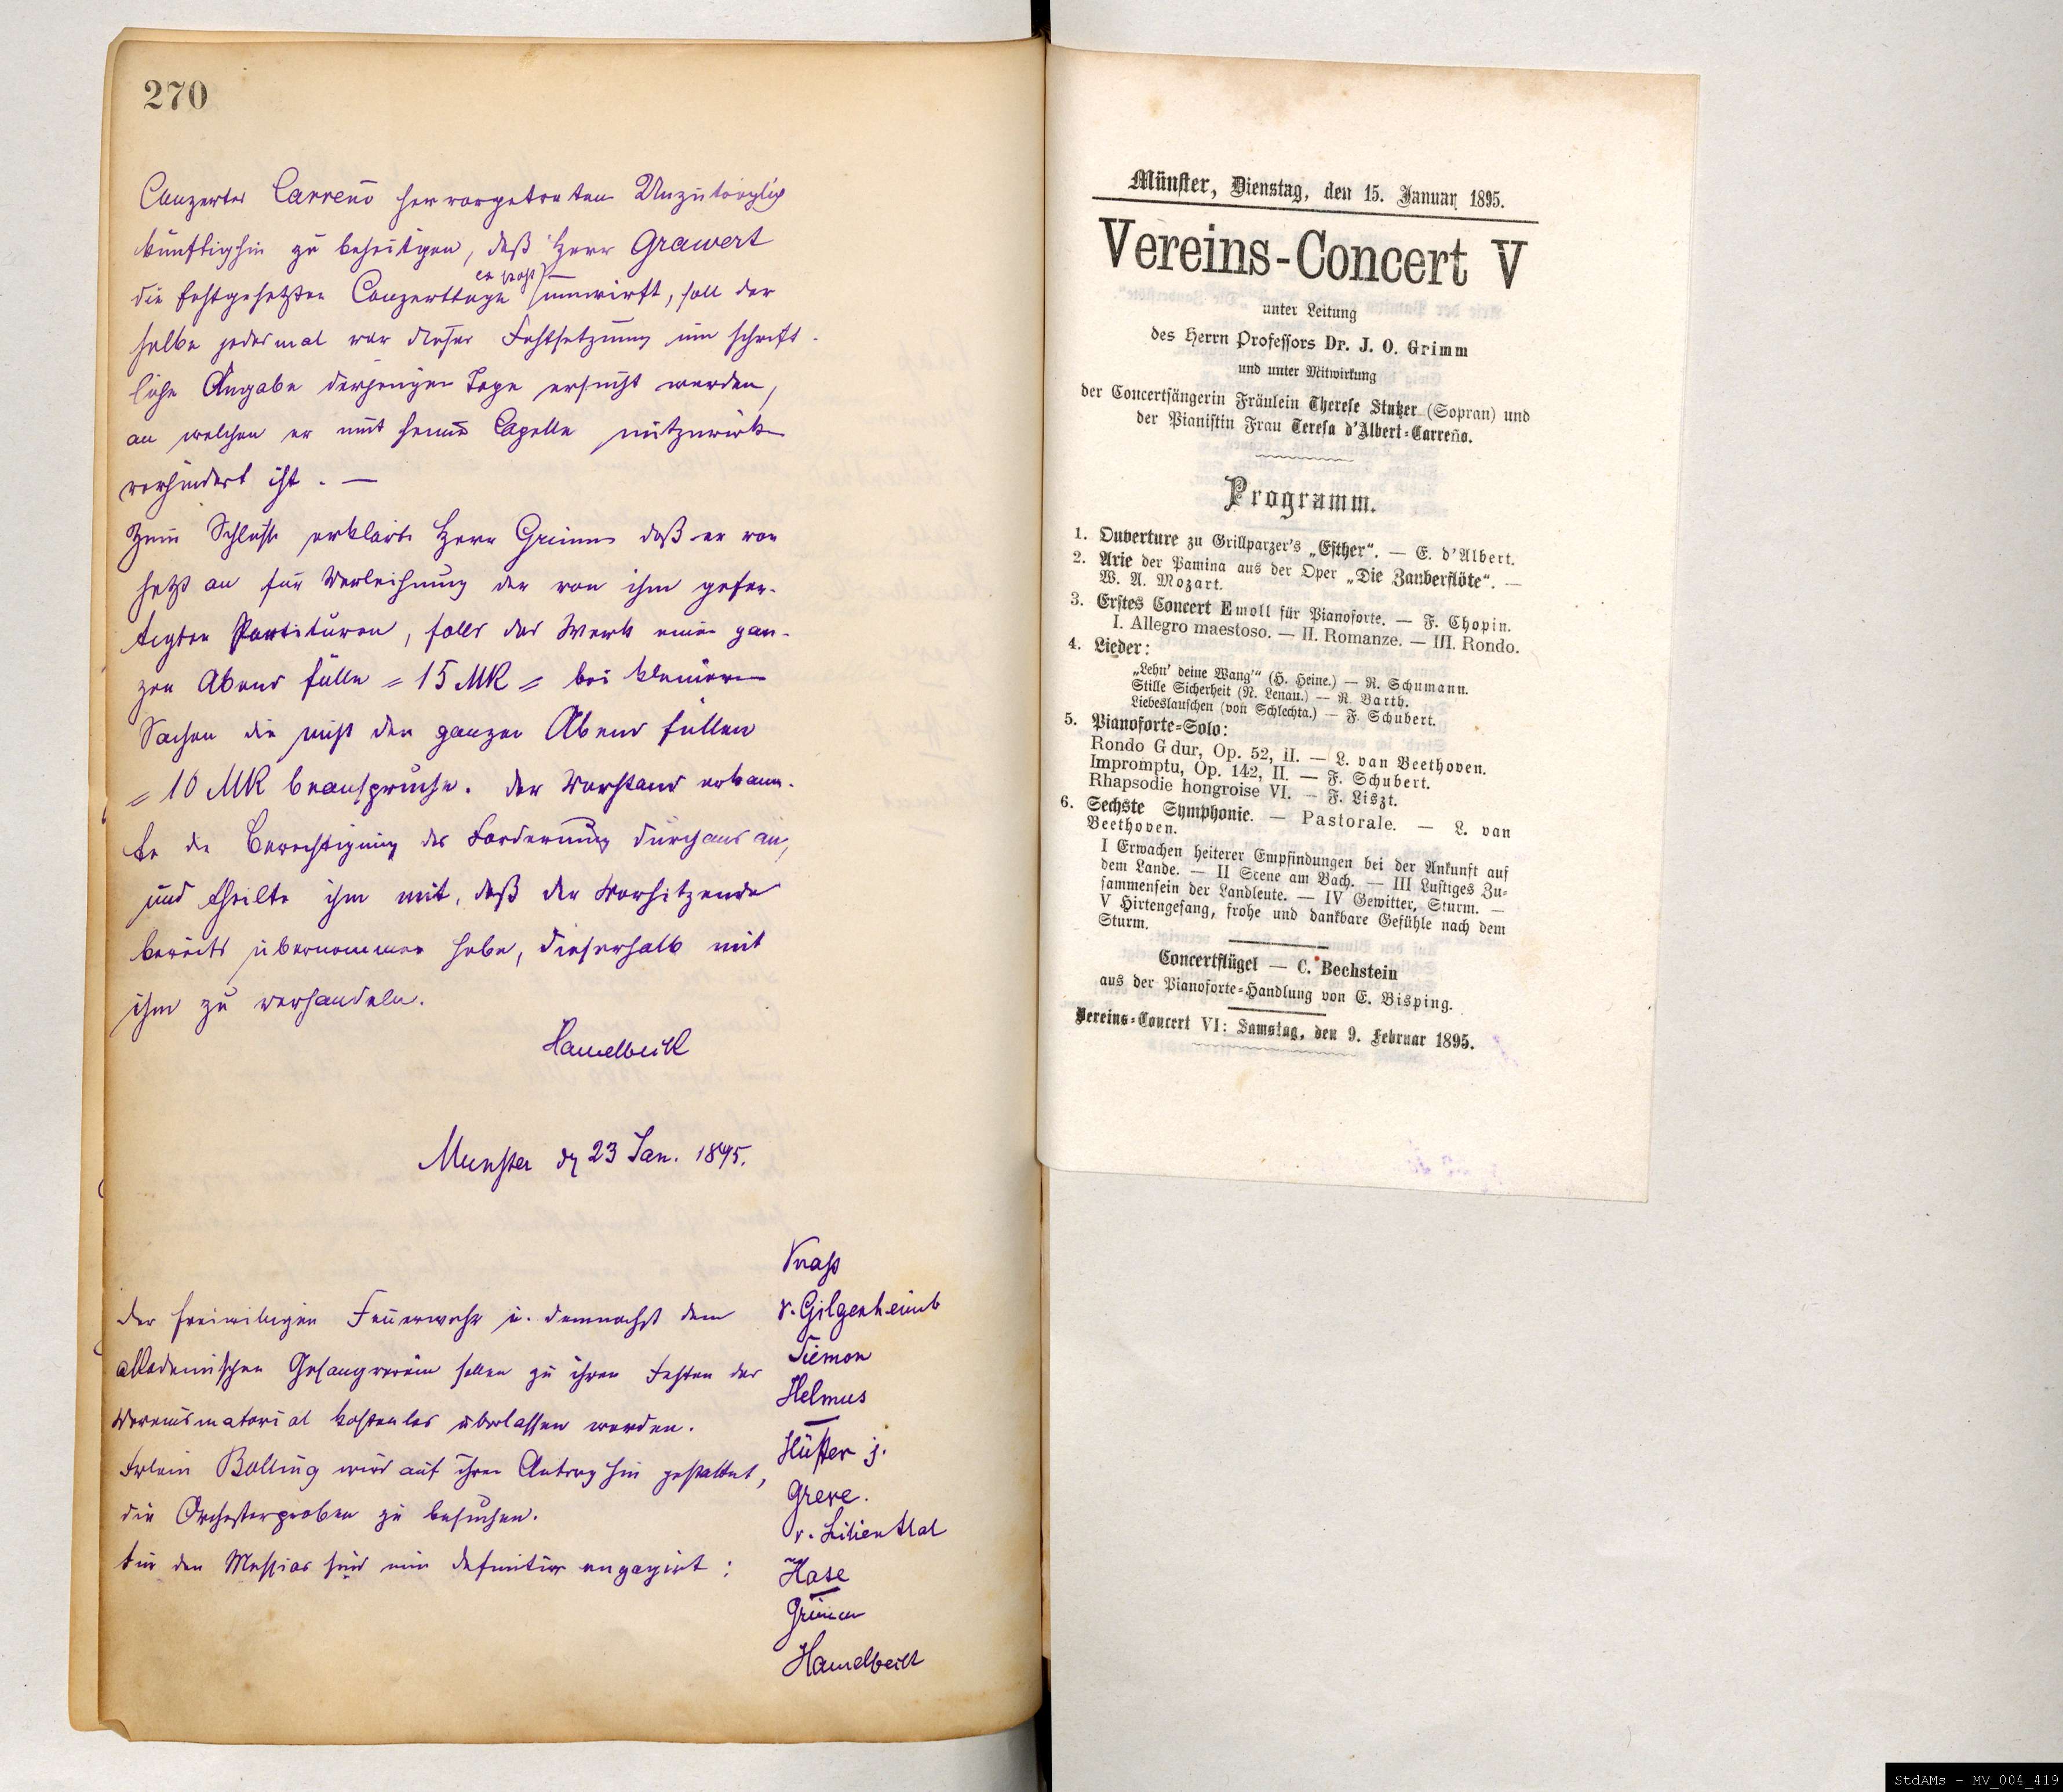 270
Conzertes Carreño hervorgetretenen Unzuträglich
künftighin zu beseitigen, daß Herr Grawert
die festgesetzten Conzerttage umwirft, soll der
selbe jedesmal vor dieser Festsetzung um schrift-
liche Angabe derjenigen Tage ersucht werden,
an welchen er mit seiner Capelle mitzuwirken
verhindert ist. —
Zum Schluß erklärte Herr Grimm daß er von
jetzt an für Verleihung der von ihm gefer-
tigten Partituren, falls das Werk einen gan-
zen Abend fülle = 15 MK = bei kleineren
Sachen die nicht den ganzen Abend füllen
= 10 MK beanspruche. Der Vorstand erkann-
te die Berechtigung der Forderung durchaus an,
und theilte ihm mit, daß der Vorsitzende
bereits übernommen habe, dieserhalb mit
ihm zu verhandeln.
Hamelbeck
Munster d 23 Jan. 1895.
v. Gilgenheimb
Siemon
Helmus
Hüffer j.
Greve.
v. Lilienthal
Hase
Grimm
Hamelbeck
Der freiwilligen Feuerwehr u. demnächst dem
akademischen Gesangverein sollen zu ihren Festen das
Vereinsmaterial kostenlos überlassen werden.
Frlein Bolling wird auf ihren Antrag hin gestattet,
die Orchesterproben zu besuchen.
Für den Messias sind nun definitiv engagirt:
Münster, Dienstag, den 15. Januar 1895.
Vereins-Concert V
unter Leitung
des Herrn Professors Dr. J. O. Grimm
und unter Mitwirkung
der Concertsängerin Fräulein Therese Stutzer (Sopran) und
der Pianistin Frau Teresa d'Albert-Carreño.
Programm.
1. Ouverture zu Grillparzer's „Esther". — E. d'Albert.
2. Arie der Pamina aus der Oper „Die Zauberflöte". —
W. A. Mozart.
3. Erstes Concert Emoll für Pianoforte. — F. Chopin.
I. Allegro maestoso. — II. Romanze. — III. Rondo.
4. Lieder:
„Lehn' deine Wang'" (H. Heine.) — R. Schumann.
Stille Sicherheit (N. Lenau.) — R. Barth.
Liebeslauschen (von Schlechta.) — F. Schubert.
5. Pianoforte-Solo:
Rondo G dur, Op. 52, iI. — L. van Beethoven.
Impromptu, Op. 142, II. — F. Schubert.
Rhapsodie hongroise VI. — F. Liszt.
6. Sechste Symphonie. — Pastorale. — L. van
Beethoven.
I Erwachen heiterer Empfindungen bei der Ankunft auf
dem Lande. — II Scene am Bach. — III Lustiges Zu-
sammensein der Landleute. — IV Gewitter, Sturm. —
V Hirtengesang, frohe und dankbare Gefühle nach dem
Sturm.
Concertflügel — C. Bechstein
aus der Pianoforte-Handlung von E. Bisping.
Vereins-Concert VI: Samstag, den 9. Februar 1895.
StdAMs - MV_004_419